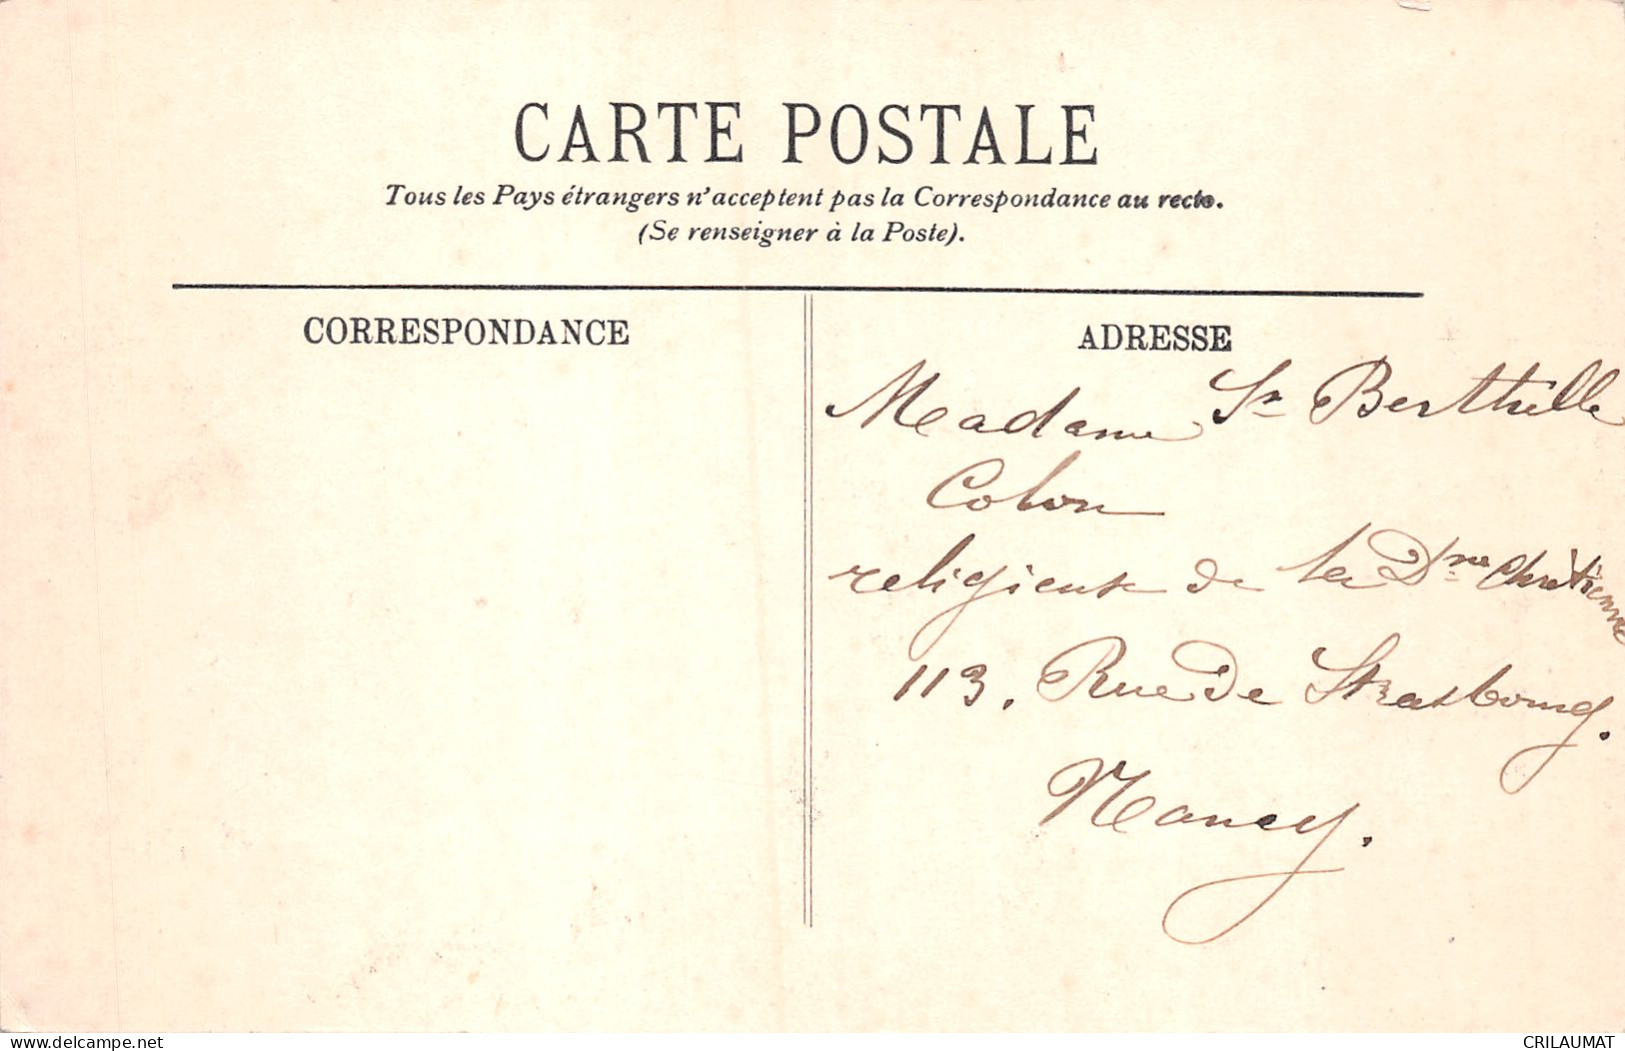 CARTE POSTALE
Tous les Pays étrangers n'acceptent pas la Correspondance au recto.
(Se renseigner à la Poste).
CORRESPONDANCE
ADRESSE
Madame Sr Berthille
Colon
religieuse de la Dne Chrétienne
113. Rue de Strasbourg.
Nancy.
www.delcampe.net
CRILAUMAT